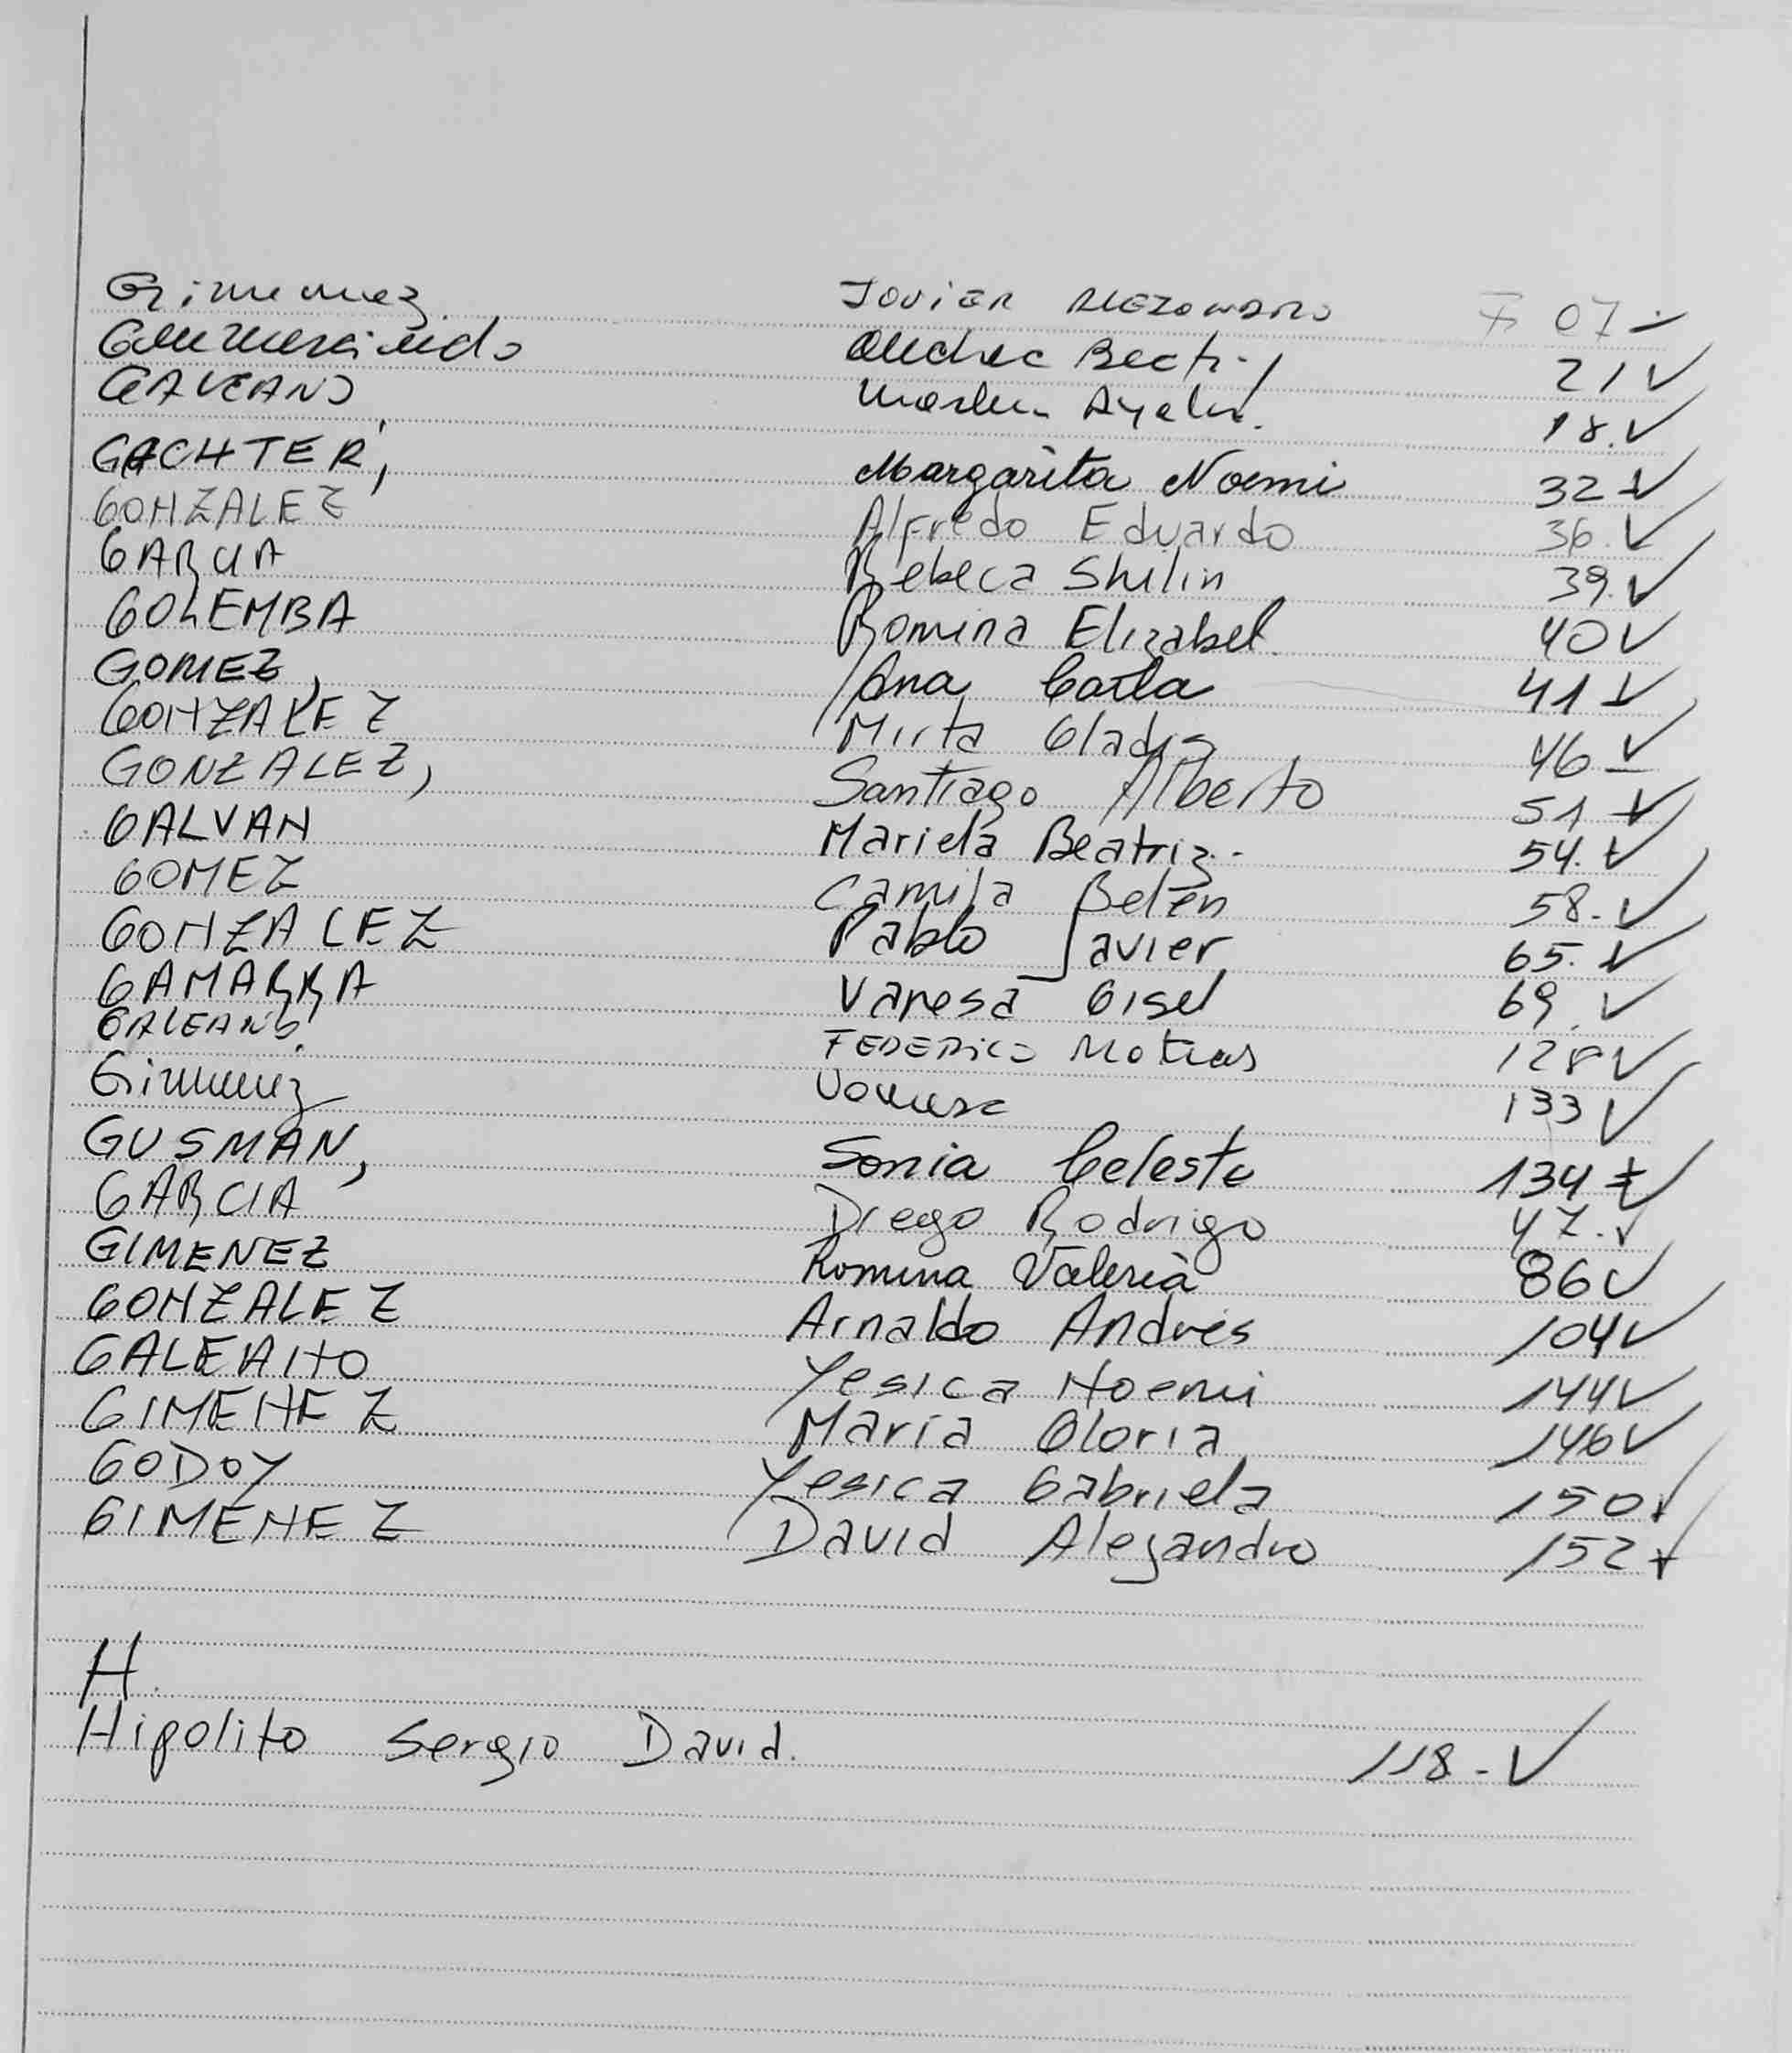 Gimenez Javier Alezandro F 07 -
Gumersindo Beatriz 21 ✓
GALEANO Ayelen. 18. ✓
GACHTER, Margarita Noemi 32 ✓
GONZALEZ Alfredo Eduardo 36. ✓
GARCIA Rebeca Shilin 39. ✓
GOLEMBA Romina Elizabet. 40 ✓
GOMEZ, Ana Carla 41 ✓
GONZALEZ Mirta Gladis 46 ✓
GONZALEZ, Santiago Alberto 51 ✓
GALVAN Mariela Beatriz.- 54. ✓
GOMEZ Camila Belén 58. ✓
GONZALEZ Pablo Javier 65. ✓
GAMARRA Vanesa Gisel 69. ✓
GALEANO. FEDERICO Matias 128 ✓
Gimenez Vanesa 133 ✓
GUSMAN, Sonia Celeste 134 ✓
GARCIA Diego Rodrigo 47. ✓
GIMENEZ Romina Valeria 86 ✓
GONZALEZ Arnaldo Andrés 104 ✓
GALEANO Yesica Noemi 144 ✓
GIMENEZ María Gloria 146 ✓
GODOY Yesica Gabriela 150 ✓
GIMENEZ David Alejandro 152 ✓
H.
Hipolito Sergio David. 118 - ✓